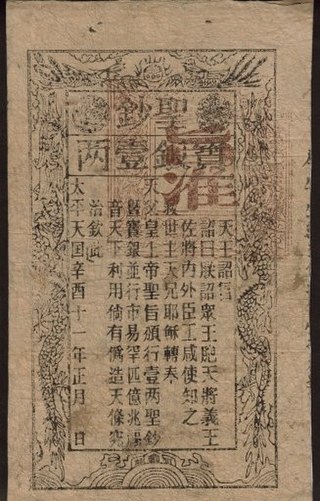 聖鈔
寶銀壹两
准
天王詔旨
詔曰朕詔眾王兜天將義王
佐將內外臣工咸使知之
救世主天兄耶穌轉奉
天父皇上帝聖旨頒行壹两聖鈔
寶銀並行市易罕匹億兆
音天下利用倘有僞造天條
治欽此
太平天囯辛酉十一年正月 日